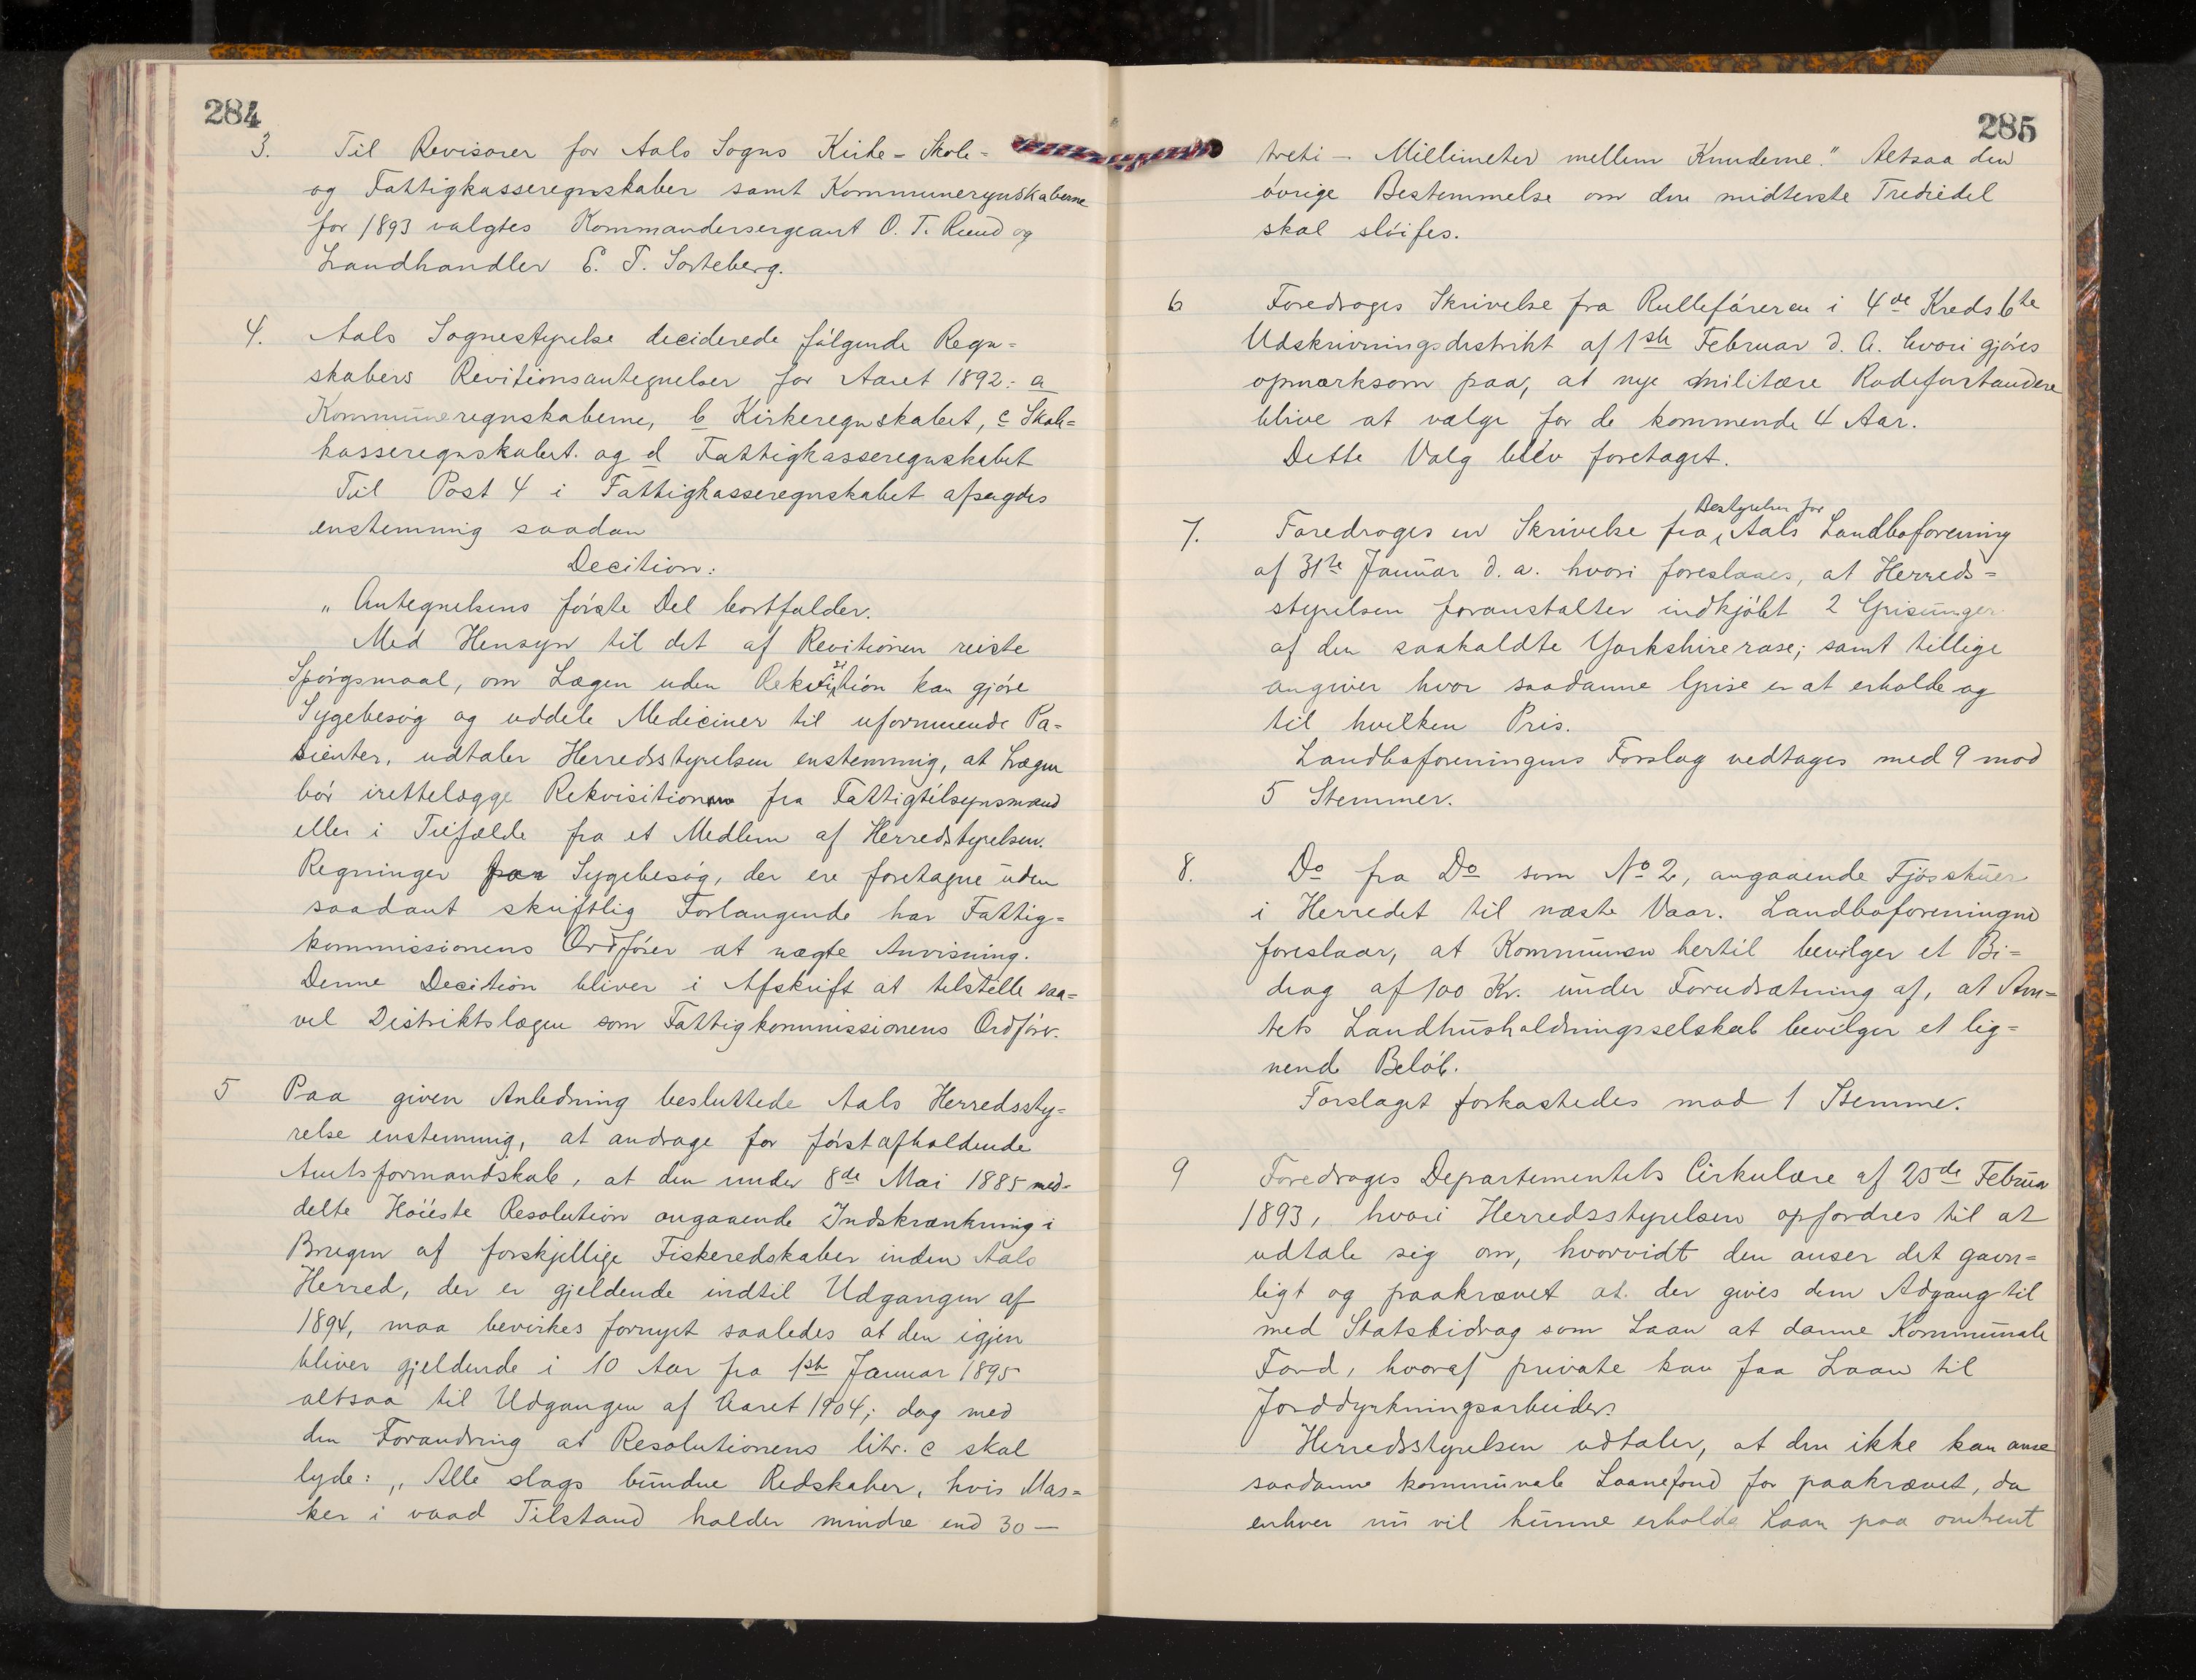 284
3. Til Revisorer for Aals Sogns Kirke- Skole-
og Fattigkasseregnskaber samt Kommuneregnskaberne
for 1893 valgtes Kommandersergeant O. T. Ruud og
Landhandler E. T. Sorteberg.
4. Aals Sognestyrelse deciderede følgende Regn=
skabers Revitionsantegnelser for Aaret 1892: a
Kommuneregnskaberne, b Kirkeregnskabet, c Skole=
kasseregnskabet. og d Fattigkasseregnskabet
Til Post 4 i Fattigkasseregnskabet afsagdes
enstemmig saadan
Decition:
„Antegnelsens første Del bortfalder.
Med Hensyn til det af Revitionen reiste
Spørgsmaal, om Lægen uden Rekvisition kan gjøre
Sygebesøg og uddele Mediciner til uformuende Pa=
sienter, udtaler Herredsstyrelsen enstemmig, at Lægen
bør irettelægge Rekvisition fra Fattigtilsynsmænd
eller i Tilfælde fra et Medlem af Herredstyrelsen.
Regninger paa Sygebesøg, der ere foretagne uden
saadant skriftlig Forlangende har Fattig=
kommissionens Ordfører at nægte Anvisning.
Denne Decition bliver i Afskrift at tilstille saa=
vel Distriktslægen som Fattigkommissionens Ordfører.
5 Paa given Anledning besluttede Aals Herredssty=
relse enstemmig, at andrage for først afholdende
Amtsformandskab, at den under 8de Mai 1885 med=
delte Høieste Resolution angaaende Indskrænkning i
Brugen af forskjellige Fiskeredskaber inden Aals
Herred, der er gjeldende indtil Udgangen af
1894, maa bevirkes fornyet saaledes at den igjen
bliver gjeldende i 10 Aar fra 1ste Januar 1895
altsaa til Udgangen af Aaret 1904; dog med
den Forandring at Resolutionens litr. c skal
lyde: „Alle slags bundne Redskaber, hvis Mas=
ker i vaad Tilstand holder mindre end 30 —
285
treti — Millimeter mellem Knuderne." Altsaa den
øvrige Bestemmelse om den midterste Trediedel
skal sløifes.
6 Foredroges Skrivelse fra Rulleføreren i 4de Kreds 6te
Udskrivningsdistrikt af 1ste Februar d. A. hvori gjøres
opmærksom paa, at nye militære Rodeforstandere
blive at vælge for de kommende 4 Aar.
Dette Valg blev foretaget.
7. Foredroges en Skrivelse fra Bestyrelsen for Aals Landboforening
af 31te Januar d. a. hvori foreslaaes, at Herreds=
styrelsen foranstalter indkjøbt 2 Grisunger
af den saakaldte Yorkshirerase; samt tillige
angiver hvor saadanne Grise er at erholde og
til hvilken Pris.
Landboforeningens Forslag vedtages med 9 mod
5 Stemmer.
8. Do fra Do som No 2, angaaende Fjøsskuer
i Herredet til næste Vaar. Landboforeningen
foreslaar, at Kommunen hertil bevilger et Bi=
drag af 100 Kr. under Forudsætning af, at Am=
tets Landhusholdningsselskab bevilger et lig=
nende Beløb.
Forslaget forkastedes mod 1 Stemme.
9 Foredroges Departementets Cirkulære af 25de Februar
1893, hvori Herredsstyrelsen opfordres til at
udtale sig om, hvorvidt den anser det gavn=
ligt og paakrævet at der gives dem Adgang til
med Statsbidrag som Laan at danne Kommunale
Fond, hvoraf private kan faa Laan til
Jorddyrkningsarbeider.
Herredsstyrelsen udtaler, at den ikke kan anse
saadanne kommunale Laanefond for paakrævet, da
enhver nu vil kunne erholde Laan paa omtrent